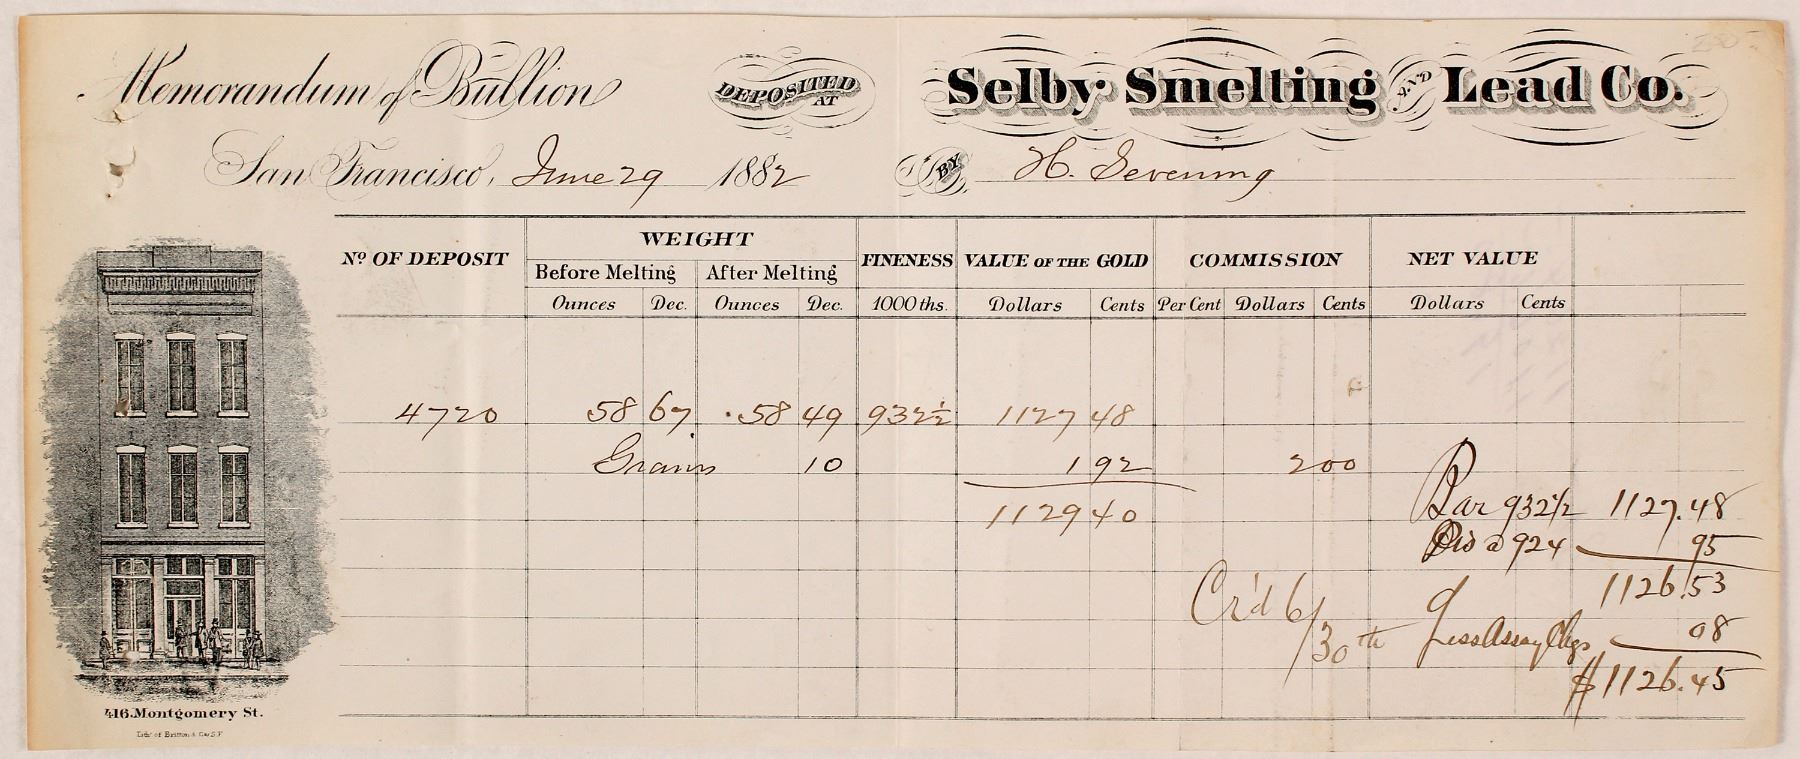 Memorandum of Bullion DEPOSITED AT Selby Smelting AND Lead Co.
San Francisco, June 29 1882 BY H. Sevening
No OF DEPOSIT WEIGHT FINENESS VALUE OF THE GOLD COMMISSION NET VALUE
Before Melting After Melting
Ounces Dec. Ounces Dec. 1000ths. Dollars Cents Per Cent Dollars Cents Dollars Cents
4720 58 67 58 49 932½ 1127 48
Grains 10 1 92 2 00
1129 40
Bar 932½ 1127.48
Dis a 924 95
1126.53
Cr'd 6/30th
Less Assay Chgs 08
$1126.45
416. Montgomery St.
Lith. of Britton & Rey S.F.